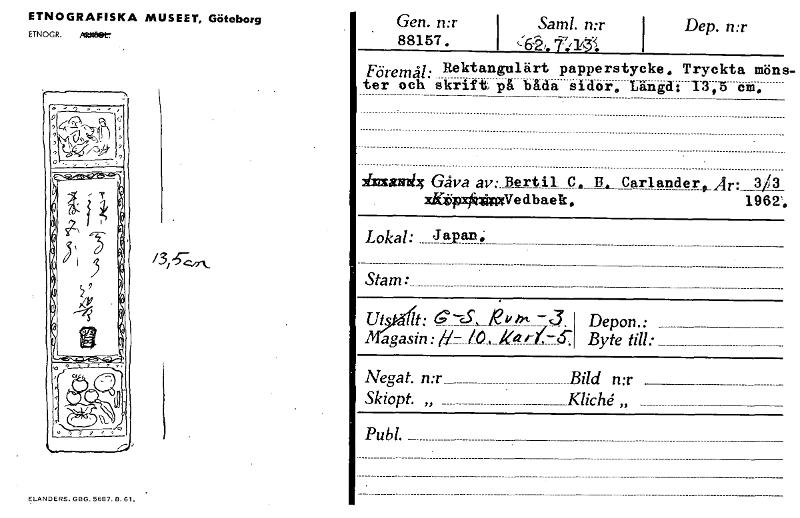 ETNOGRAFISKA MUSEET, Göteborg
ETNOGR.
13,5cm
ELANDERS. GBG. 5687. 8. 61.
Gen. n:r Saml. n:r Dep. n:r
88157. 62.7.13.
Föremål: Rektangulärt papperstycke. Tryckta möns-
ter och skrift på båda sidor. Längd: 13,5 cm.
Gåva av: Bertil C. H. Carlander, År: 3/3
Vedbaek. 1962.
Lokal: Japan.
Stam:
Utställt: G-S. Rum-3. Depon.:
Magasin: H-10. Kart.-5. Byte till:
Negat. n:r Bild n:r
Skiopt. „ Kliché „
Publ.